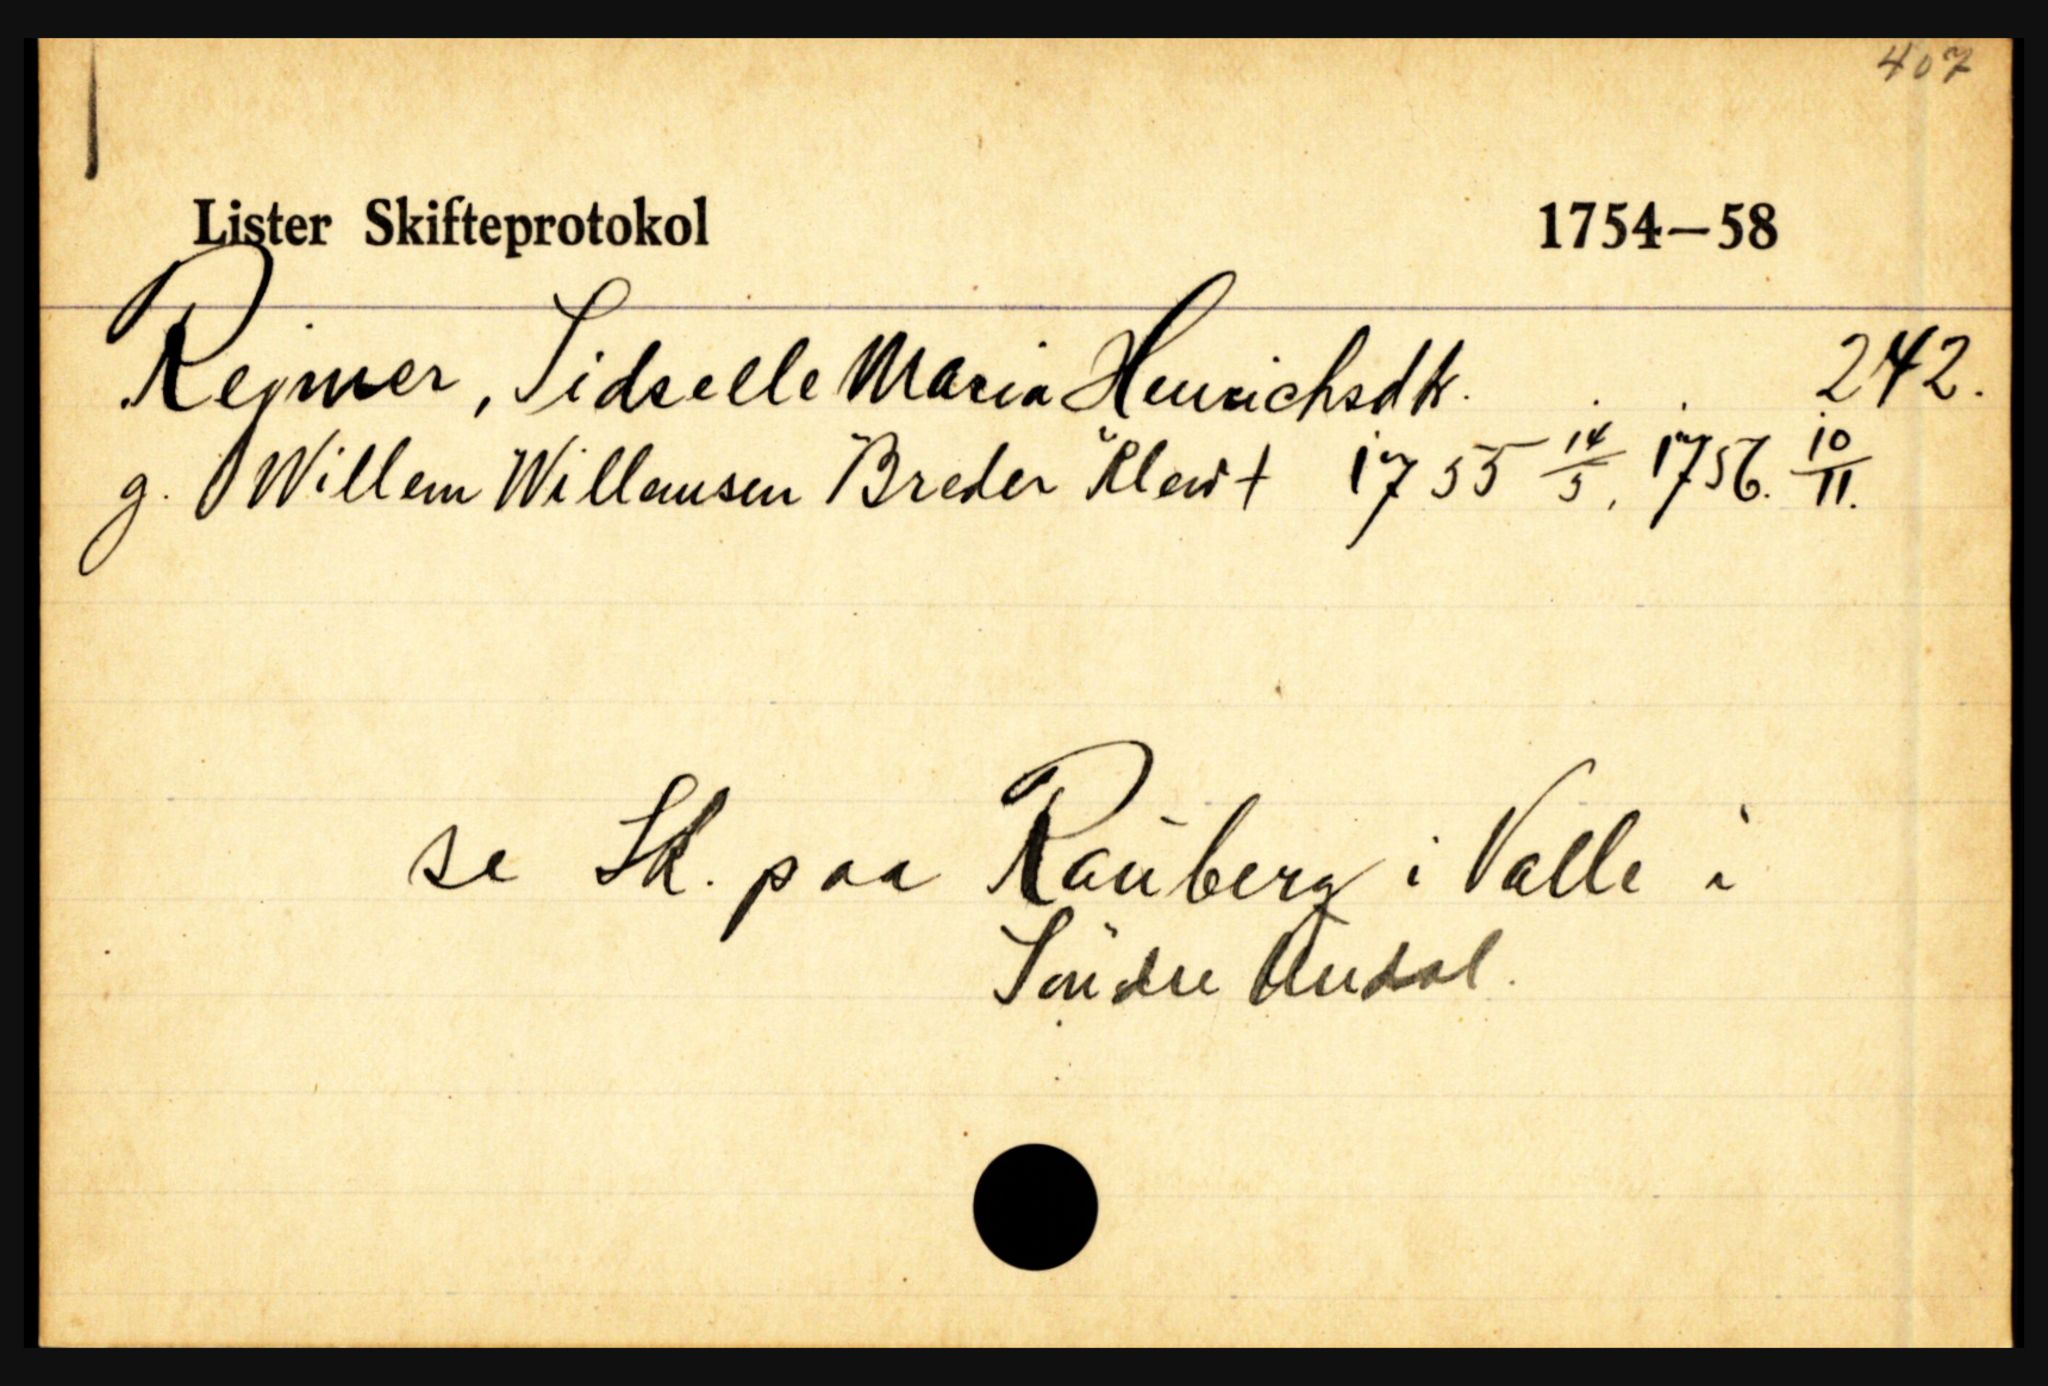 407
Lister Skifteprotokol 1754—58
Rejmer, Sidselle Maria Henrichsdtr. 242.
g. Willem Willemsen Breder 1755 14/5, 1756. 10/11.
se Sk. paa Rauberg i Valle i
Søndre Undal.